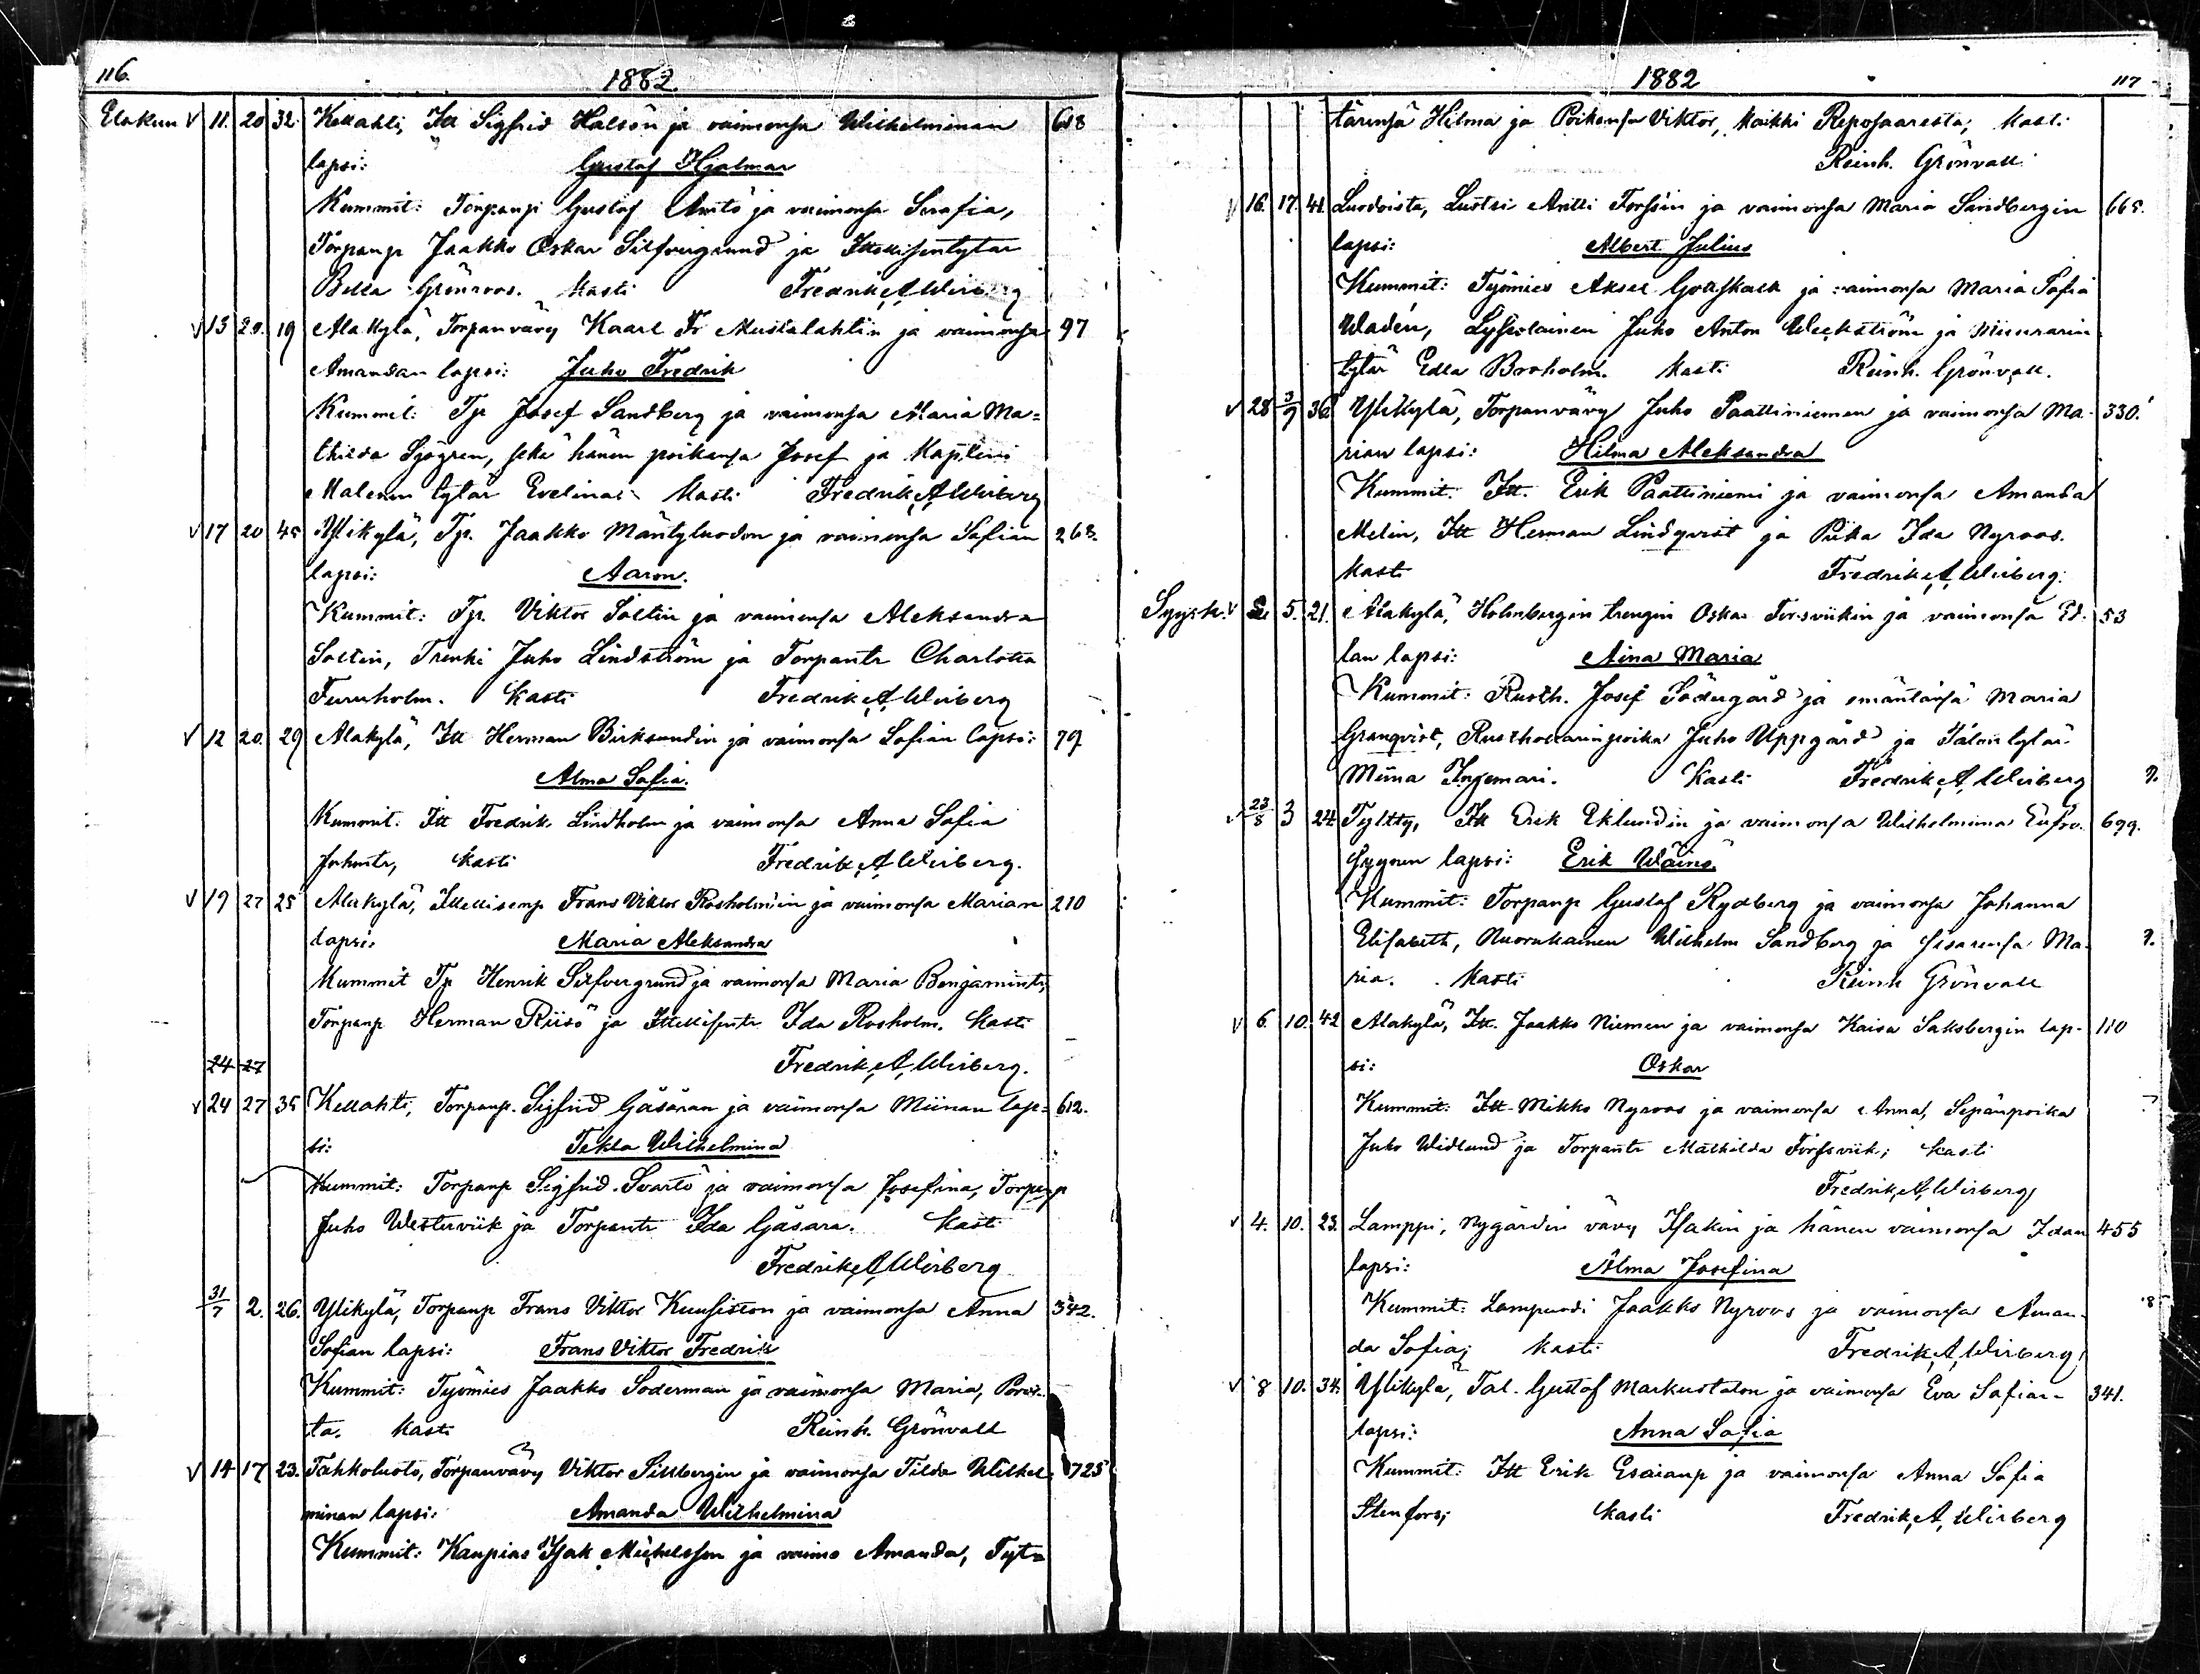 116.
1882
Elokuu v 11. 20 32. Kellahti, Itt Sigfrid Halsön ja vaimonsa Wilhelminan 618
lapsi: Gustaf Hjalmar
Kummit: Torpanp Gustaf Antö ja vaimonsa Serafia,
Torpanp Jaakko Oskar Silfvergrund ja Itsellisentytär
Bella Grönroos. Kasti Fredrik A Wirberg
v 13 20. 19 Alakylä, Torpanvävy Kaarl Fr Mustalahtin ja vaimonsa 97
Amandan lapsi: Juho Fredrik
Kummit: Tp Josef Sandberg ja vaimonsa Maria Ma=
thilda Sjögren, sekä hänen poikansa Josef ja Kapteini
Malenin tytär Evelina Kasti Fredrik A Wirberg
v 17 20 45 Ylikylä, Tp. Jaakko Mäntyluodon ja vaimonsa Sofian 268.
lapsi: Aaron.
Kummit: Tp. Viktor Saltin ja vaimonsa Aleksandra
Saltin, Trenki Juho Lindström ja Torpantr Charlotta
Furuholm. Kasti Fredrik A Wirberg
v 12 20. 29 Alakylä, Itt Herman Birksundin ja vaimonsa Sofian lapsi: 79
Alma Sofia.
Kummit: Itt Fredrik Lindholm ja vaimonsa Anna Sofia
Juhontr, Kasti Fredrik A Wirberg.
v 19 27 25 Alakylä, Itsellisenp Frans Viktor Rosholmin ja vaimonsa Marian 210
lapsi: Maria Aleksandra
Kummit Tp Henrik Silfvergrund ja vaimonsa Maria Benjamintr,
Torpanp Herman Riisö ja Itsellisentr Ida Rosholm. Kasti
24 27 Fredrik A Wirberg.
v 24 27 35 Kellahti, Torpanp. Sigfrid Gäsäran ja vaimonsa Miinan lap= 612.
si: Tekla Wilhelmina
Kummit: Torpanp Sigfrid Svartö ja vaimonsa Josefina, Torpanp
Juho Westerviik ja Torpantr Ida Gäsära. Kasti
Fredrik A Wirberg
31/7 2. 26. Ylikylä, Torpanp Frans Viktor Kuusiston ja vaimonsa Anna 342.
Sofian lapsi: Frans Viktor Fredrik
Kummit: Työmies Jaakko Söderman ja vaimonsa Maria, Poris=
ta. Kasti Reinh. Grönvall
v 14 17 23. Tahkoluoto, Torpanvävy Viktor Sillbergin ja vaimonsa Tilda Wilhel= 725
minan lapsi: Amanda Wilhelmina
Kummit: Kaupias Isak Michelsson ja vaimo Amanda, Tytä
1882
117
tärensä Hilma ja Poikansa Viktor, kaikki Reposaaresta; Kasti
Reinh. Grönvall
v 16. 17. 41. Luodoista, Lustri Antti Forssin ja vaimonsa Maria Sandbergin 665.
lapsi: Albert Julius
Kummit: Työmies Aksel Gottskalk ja vaimonsa Maria Sofia
Wadén, Ja Juho Anton Weckström ja Muurarin
tytär Edla Broholm. Kasti Reinh. Grönvall.
v 28 3/9 36. Ylikylä, Torpanvävy Juho Paattiniemen ja vaimonsa Ma- 330.
rian lapsi: Hilma Aleksandra
Kummit: Itt. Erik Paattiniemi ja vaimonsa Amanda
Melin, Itt Herman Lindqvist ja Piika Ida Nyroos.
Kasti Fredrik A Wirberg.
Syysk. v 2. 5. 21. Alakylä, Holmbergin trengin Oskar Forsviikin ja vaimonsa Ed- 53
lan lapsi: Aina Maria
Kummit: Rusth. Josef Södergård ja emäntänsä Maria
Granqvist, Rusthollarinpoika Juho Uppgård ja Talontytär
Miina Ingemari. Kasti Fredrik A Wirberg
v 23/8 3 24. Tyltty, Itt Erik Eklundin ja vaimonsa Wilhelmina Eufro- 699.
synen lapsi: Erik Wäinö
Kummit: Torpanp Gustaf Rydberg ja vaimonsa Johanna
Elisabeth, Nuorukainen Wilhelm Sandberg ja sisarensa Ma-
ria. Kasti Reinh Grönvall
v 6. 10. 42 Alakylä, Itt. Jaakko Niemen ja vaimonsa Kaisa Saksbergin lap- 110
si: Oskar
Kummit: Itt. Mikko Nyroos ja vaimonsa Anna, Sepänpoika
Juho Widlund ja Torpantr Mathilda Forssviik; Kasti
Fredrik A Wirberg
v 4. 10. 23. Lamppi, Nygårdin vävy Isakin ja hänen vaimonsa Idan 455
lapsi: Alma Josefina
Kummit: Lampuodi Jaakko Nyroos ja vaimonsa Aman-
da Sofia; Kasti Fredrik A Wirberg
v 8 10. 34. Ylikylä, Tal. Gustaf Markustalon ja vaimonsa Eva Sofian 341.
lapsi: Anna Sofia
Kummit: Itt Erik Esaianp ja vaimonsa Anna Sofia
Stenfors; Kasti Fredrik A Wirberg